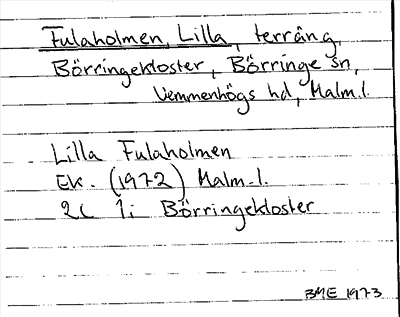 Fulaholmen, Lilla, terräng,
Börringekloster, Börringe sn,
Vemmenhögs hd, Malm.l.
Lilla Fulaholmen
Ek. (1972) Malm.l.
2C 1i Börringekloster
BME 1973